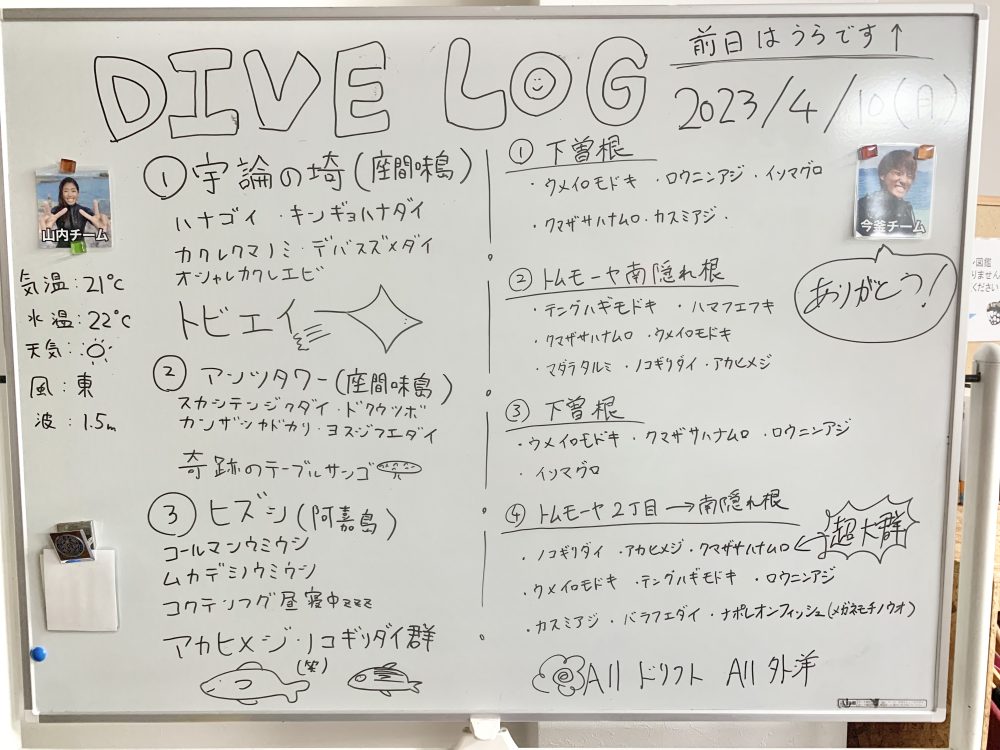 DIVE LOG
前日はうらです↑
2023/4/10(月)
山内チーム
気温:21℃
水温:22℃
天気:
風:東
波:1.5m
①宇論の埼(座間味島)
ハナゴイ・キンギョハナダイ
カクレクマノミ・デバスズメダイ
オシャレカクレエビ
トビエイ
②アンツタワー(座間味島)
スカシテンジクダイ・ドクウツボ
カンザシヤドカリ・ヨスジフエダイ
奇跡のテーブルサンゴ
③ヒズシ(阿嘉島)
コールマンウミウシ
ムカデミノウミウシ
コクテンフグ昼寝中zzz
アカヒメジ・ノコギリダイ群
(笑)
①下曽根
・ウメイロモドキ・ロウニンアジ・イソマグロ
・クマザサハナムロ・カスミアジ・
②トムモーヤ南隠れ根
・テングハギモドキ・ハマフエフキ
・クマザサハナムロ・ウメイロモドキ
・マダラタルミ・ノコギリダイ・アカヒメジ
③下曽根
・ウメイロモドキ・クマザサハナムロ・ロウニンアジ
・イソマグロ
④トムモーヤ2丁目→南隠れ根
・ノコギリダイ・アカヒメジ・クマザサハナムロ
超大群
・ウメイロモドキ・テングハギモドキ・ロウニンアジ
・カスミアジ・バラフエダイ・ナポレオンフィッシュ(メガネモチノウオ)
All ドリフト All 外洋
今釜チーム
ありがとう!
図鑑
りません
ください